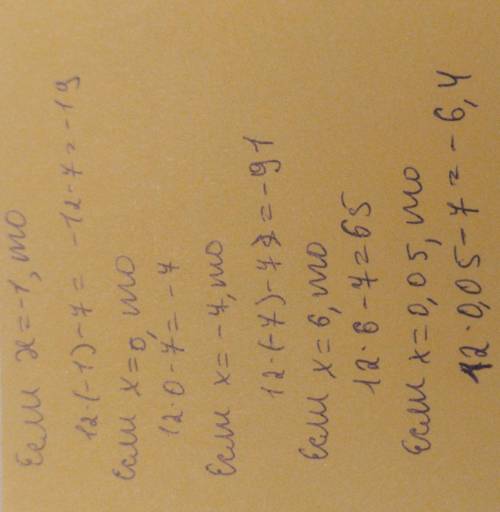 Если x=-1, то
12·(-1)-7= -12-7= -19
Если x=0, то
12·0-7= -7
Если x= -7, то
12·(-7)-7= -91
Если x=6, то
12·6-7=65
Если x=0,05, то
12·0,05-7= -6,4